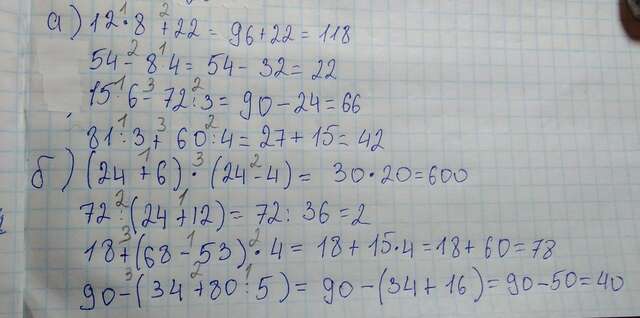 а) 12·8+22=96+22=118
54-8·4=54-32=22
15·6-72:3=90-24=66
81:3+60:4=27+15=42
б) (24+6)·(24-4)=30·20=600
72:(24+12)=72:36=2
18+(68-53)·4=18+15·4=18+60=78
90-(34+80:5)=90-(34+16)=90-50=40